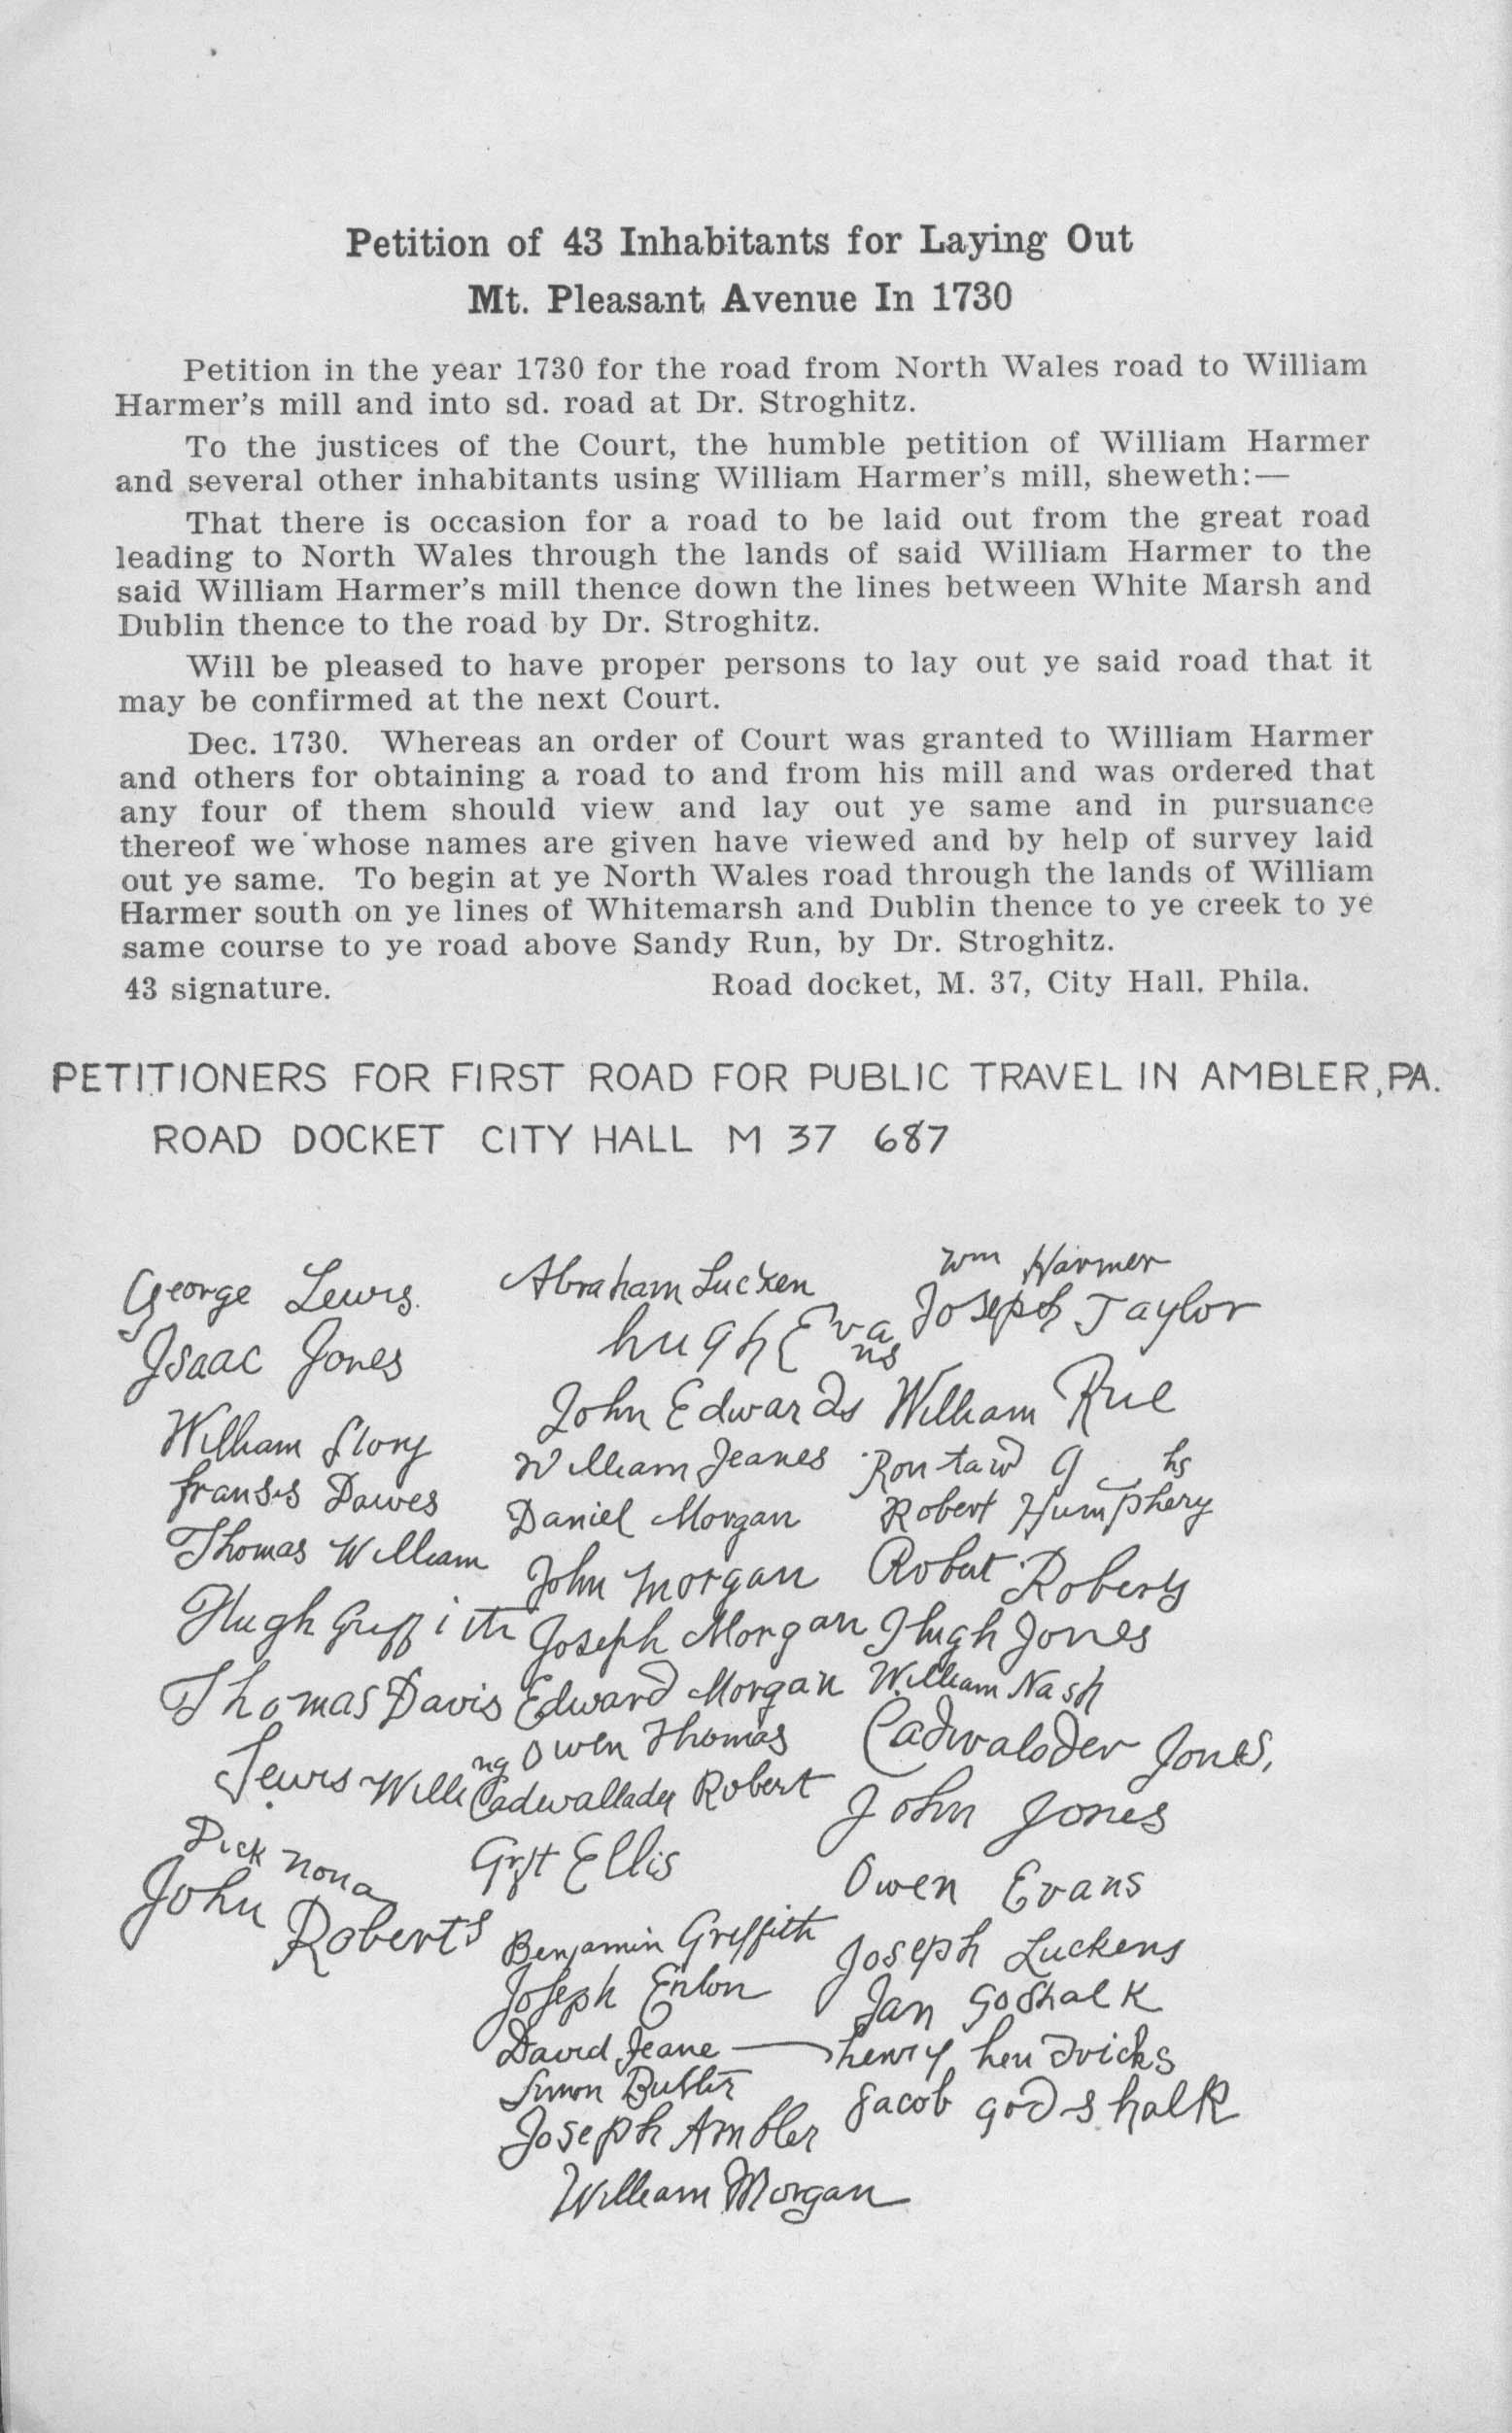 Petition of 43 Inhabitants for Laying Out
Mt. Pleasant Avenue In 1730
Petition in the year 1730 for the road from North Wales road to William
Harmer's mill and into sd. road at Dr. Stroghitz.
To the justices of the Court, the humble petition of William Harmer
and several other inhabitants using William Harmer's mill, sheweth:—
That there is occasion for a road to be laid out from the great road
leading to North Wales through the lands of said William Harmer to the
said William Harmer's mill thence down the lines between White Marsh and
Dublin thence to the road by Dr. Stroghitz.
Will be pleased to have proper persons to lay out ye said road that it
may be confirmed at the next Court.
Dec. 1730. Whereas an order of Court was granted to William Harmer
and others for obtaining a road to and from his mill and was ordered that
any four of them should view and lay out ye same and in pursuance
thereof we whose names are given have viewed and by help of survey laid
out ye same. To begin at ye North Wales road through the lands of William
Harmer south on ye lines of Whitemarsh and Dublin thence to ye creek to ye
same course to ye road above Sandy Run, by Dr. Stroghitz.
43 signature. Road docket, M. 37, City Hall. Phila.
PETITIONERS FOR FIRST ROAD FOR PUBLIC TRAVEL IN AMBLER, PA.
ROAD DOCKET CITY HALL M 37 687
George Lewis
Isaac Jones
William Story
fransis Dawes
Thomas William
Hugh Griffith
Thomas Davis
Lewis Willi
Dick nona
John Roberts
Abraham Lucken
hugh Evans
John Edwards
William Jeanes
Daniel Morgan
John Morgan
Joseph Morgan
Edward Morgan
Owen Thomas
Cadwallader Robert
Ellis
Benjamin Griffith
Joseph
David Jeane
Simon Butler
Joseph Ambler
William Morgan
Wm Harmer
Joseph Taylor
William Rue
Robert Humphery
Robert Roberts
Hugh Jones
William Nash
Cadwalader Jones,
John Jones
Owen Evans
Joseph Luckens
Jan Godshalk
henry hendricks
Jacob godshalk